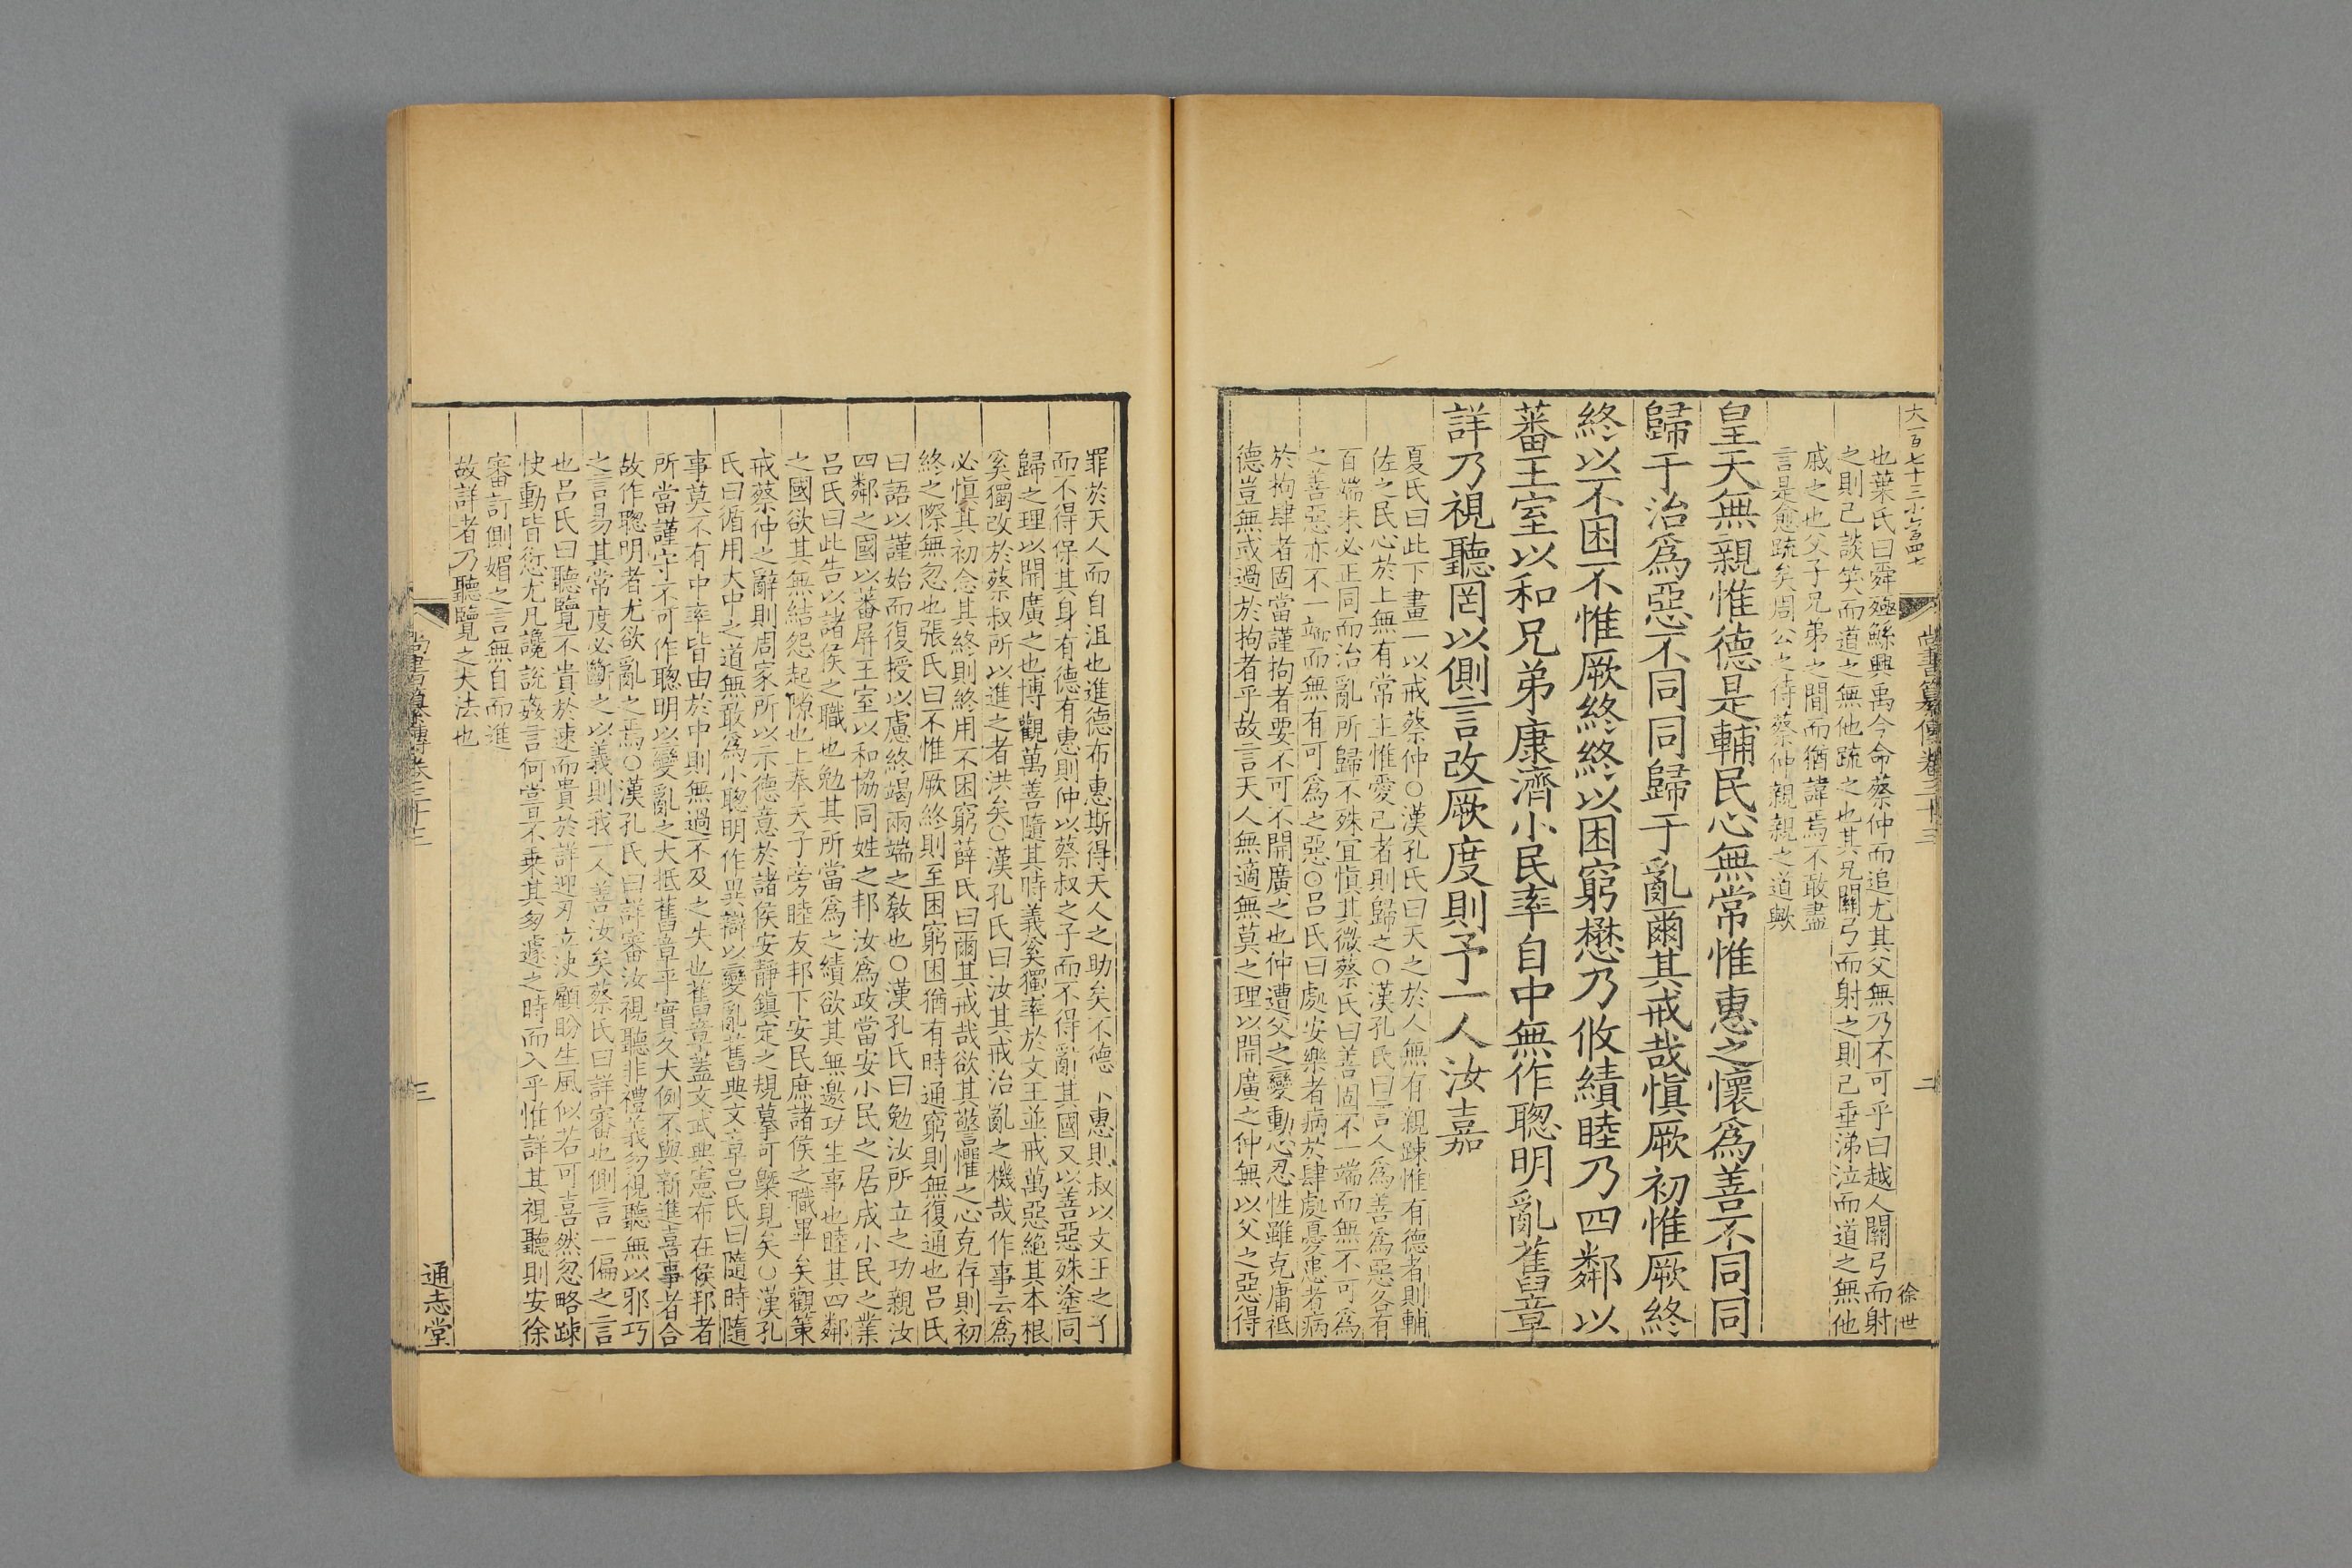 大一百七十三小六百四十
尚書纂傳卷三十三
二
徐世
也葉氏曰舜殛鯀興禹今命蔡仲而追尤其父無乃不可乎曰越人關弓而射
之則己談笑而道之無他疏之也其兄關弓而射之則己垂涕泣而道之無他
戚之也父子兄弟之間而猶諱焉不敢盡
言是愈疏矣周公之待蔡仲親親之道歟
皇天無親惟德是輔民心無常惟惠之懷爲善不同同
歸于治爲惡不同同歸于亂爾其戒哉愼厥初惟厥終
終以不困不惟厥終終以困窮懋乃攸績睦乃四鄰以
蕃王室以和兄弟康濟小民率自中無作聰明亂舊章
詳乃視聽罔以側言改厥度則予一人汝嘉
夏氏曰此下畫一以戒蔡仲○漢孔氏曰天之於人無有親踈惟有德者則輔
佐之民心於上無有常主惟愛己者則歸之○漢孔氏曰言人爲善爲惡各有
百端未必正同而治亂所歸不殊宜愼其微蔡氏曰善固不一端而無不可爲
之善惡亦不一端而無有可爲之惡○呂氏曰處安樂者病於肆處憂患者病
於拘肆者固當謹拘者要不可不開廣之也仲遭父之變動心忍性雖克庸祗
德豈無或過於拘者乎故言天人無適無莫之理以開廣之仲無以父之惡得
罪於天人而自沮也進德布惠斯得天人之助矣不德不惠則叔以文王之子
而不得保其身有德有惠則仲以蔡叔之子而不得亂其國又以善惡殊塗同
歸之理以開廣之也博觀萬善隨其時義奚獨率於文王並戒萬惡絶其本根
奚獨改於蔡叔所以進之者洪矣○漢孔氏曰汝其戒治亂之機哉作事云爲
必愼其初念其終則終用不困窮薛氏曰爾其戒哉欲其警懼之心克存則初
終之際無忽也張氏曰不惟厥終則至困窮困猶有時通窮則無復通也呂氏
曰語以謹始而復授以慮終竭兩端之敎也○漢孔氏曰勉汝所立之功親汝
四鄰之國以蕃屏王室以和協同姓之邦汝爲政當安小民之居成小民之業
呂氏曰此告以諸侯之職也勉其所當爲之績欲其無邀功生事也睦其四鄰
之國欲其無結怨起隙也上奉天子旁睦友邦下安民庶諸侯之職畢矣觀策
戒蔡仲之辭則周家所以示德意於諸侯安靜鎭定之規摹可槩見矣○漢孔
氏曰循用大中之道無敢爲小聰明作異辯以變亂舊典文章呂氏曰隨時隨
事莫不有中率皆由於中則無過不及之失也舊章蓋文武典憲布在侯邦者
所當謹守不可作聰明以變亂之大抵舊章平實久大例不與新進喜事者合
故作聰明者尤欲亂之焉○漢孔氏曰詳審汝視聽非禮義勿視聽無以邪巧
之言易其常度必斷之以義則我一人善汝矣蔡氏曰詳審也側言一偏之言
也呂氏曰聽覽不貴於速而貴於詳迎刃立決顧盼生風似若可喜然忽略踈
快動皆愆尤凡讒說姦言何嘗不乗其匆遽之時而入乎惟詳其視聽則安徐
審訂側媚之言無自而進
故詳者乃聽覽之大法也
尚書纂傳卷三十三
三
通志堂